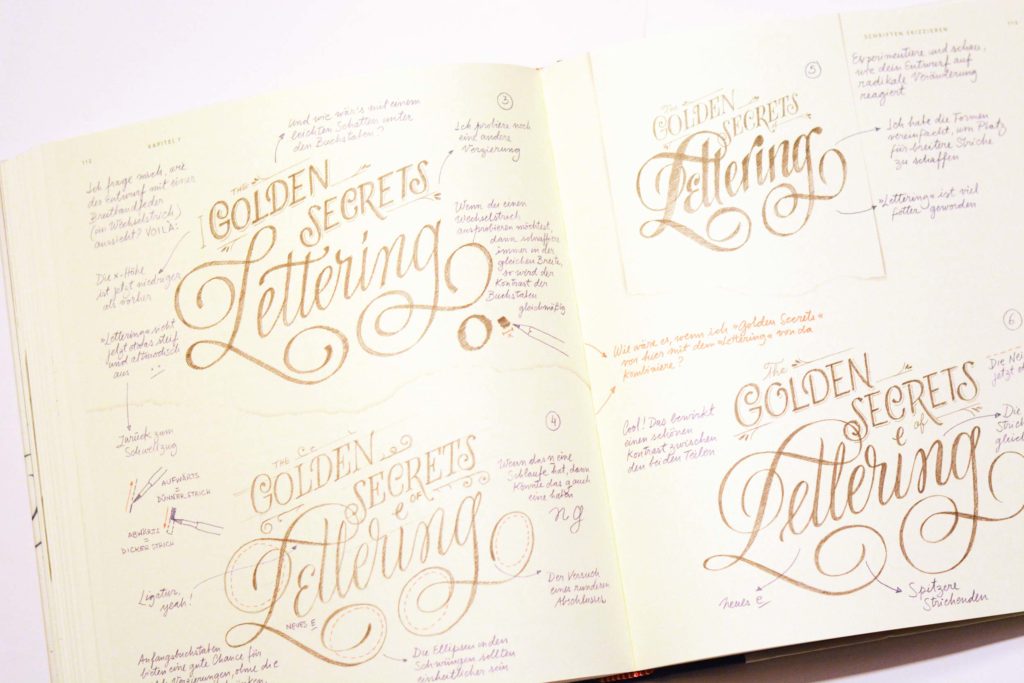 112
KAPITEL 7
Und wie wär's mit einem
leichten Schatten unter
den Buchstaben?
3
Ich probiere noch
eine andere
Verzierung
Ich frage mich, wie
der Entwurf mit einer
Breitbandfeder
(im Wechselstrich)
aussieht? VOILÀ:
THE
GOLDEN
SECRETS
Lettering
Wenn du einen
Wechselstrich
ausprobieren möchtest,
dann schraffiere
immer in der
gleichen Breite,
so wird der
Kontrast der
Buchstaben
gleichmäßig
Die x-Höhe
ist jetzt niedriger
als vorher
»Lettering« sieht
jetzt etwas steif
und altmodisch
aus
Zurück zum
Schwellzug
AUFWÄRTS
=
DÜNNER STRICH
ABWÄRTS
=
DICKER STRICH
4
THE
GOLDEN
SECRETS
OF
Lettering
Wenn das n eine
Schlaufe hat, dann
könnte das g auch
eine haben
n g
Ligatur,
yeah!
NEUES E
Der Versuch
eines runden
Abschlusses
Anfangsbuchstaben
bieten eine gute Chance für
Verzierungen, ohne die
Die Ellipsen in den
Schwüngen sollten
einheitlicher sein
SCHRIFTEN SKIZZIEREN
113
5
Experimentiere und schau,
wie dein Entwurf auf
radikale Veränderung
reagiert
The
GOLDEN
SECRETS
of
Lettering
Ich habe die Formen
vereinfacht, um Platz
für breitere Striche
zu schaffen
»Lettering« ist viel
fetter geworden
6
Wie wäre es, wenn ich »Golden Secrets«
von hier mit dem »Lettering« von da
kombiniere?
The
GOLDEN
SECRETS
of
Lettering
Cool! Das bewirkt
einen schönen
Kontrast zwischen
den beiden Teilen
Die
jetzt
Die
Strich
gleich
neues e
Spitzere
Strichenden